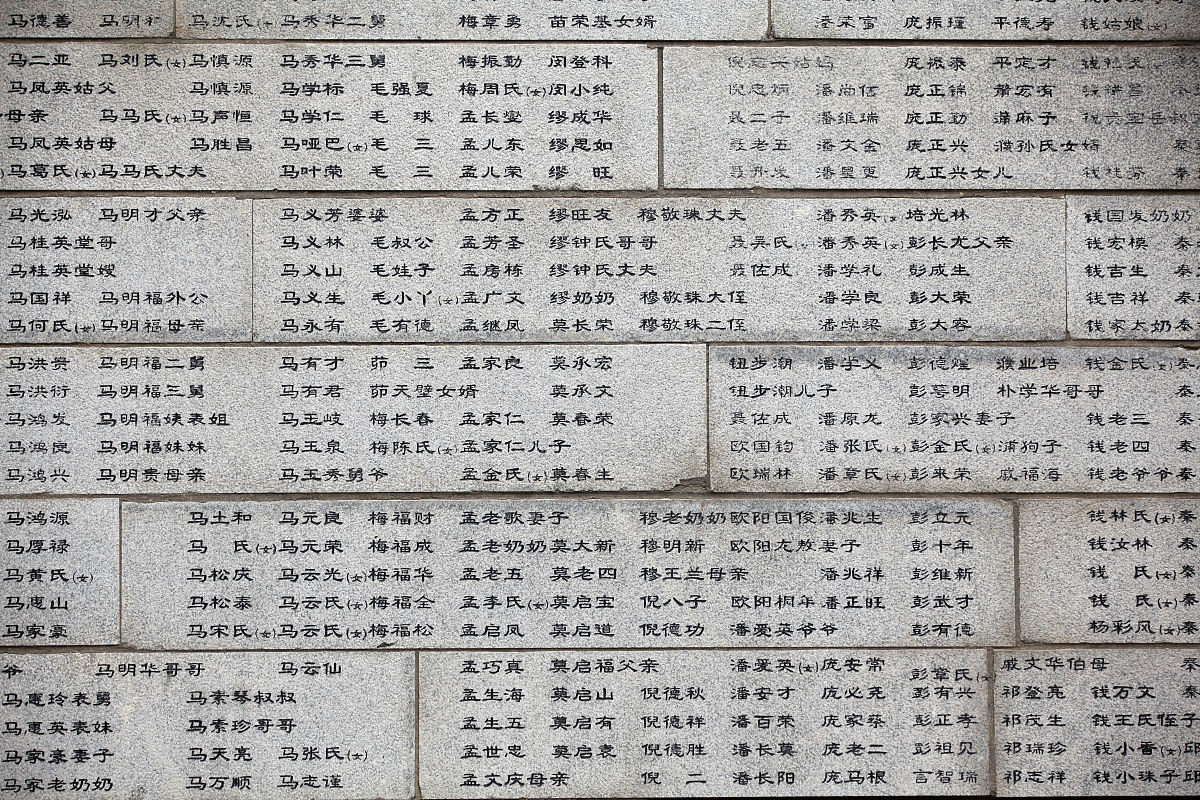 马德善 马明 马沈氏(女) 马秀华二舅 梅章勇 苗荣基女婿 潘荣富 庞振瑾 平德寿 钱姑娘(女)
马二亚 马刘氏(女) 马慎源 马秀华三舅 梅振勤 闵登科 庞振泰 平定才
马凤英姑父 马慎源 马学标 毛强夏 梅周氏(女) 闵小纯 潘尚信 庞正锦 萧宏宥
母亲 马马氏(女) 马声恒 马学仁 毛 球 孟长銮 缪成华 聂二子 潘维瑞 庞正勤 濮麻子
马凤英姑母 马胜昌 马哑巴(女) 毛 三 孟儿东 缪恩如 聂老五 潘文金 庞正兴 濮孙氏女婿 秦
马葛氏(女) 马马氏丈夫 马叶荣 毛 三 孟儿荣 缪 旺 庞正兴女儿 秦
马光泓 马明才父亲 马义芳婆婆 孟方正 缪旺友 穆敬珠丈夫 潘秀英(女) 培光林 钱国发奶奶
马桂英堂哥 马义林 毛叔公 孟芳圣 缪钟氏哥哥 聂吴氏(女) 潘秀英(女) 彭长尤父亲 钱宏模 秦
马桂英堂嫂 马义山 毛娃子 孟房栋 缪钟氏丈夫 聂佐成 潘学礼 彭成生 钱吉生 秦
马国祥 马明福外公 马义生 毛小丫(女) 孟广文 缪奶奶 穆敬珠大侄 潘学良 彭大荣 钱吉祥 秦
马何氏(女) 马明福母亲 马永有 毛有德 孟继凤 莫长荣 穆敬珠二侄 潘学梁 彭大容 钱家太奶 秦
马洪贵 马明福二舅 马有才 茆 三 孟家良 莫承宏 钮步潮 潘学义 彭德煌 濮业培 钱金氏(女) 秦
马洪衍 马明福三舅 马有君 茆天璧女婿 莫承文 钮步潮儿子 彭萼明 朴学华哥哥 秦
马鸿发 马明福姨表姐 马玉岐 梅长春 孟家仁 莫春荣 聂佐成 潘原龙 彭家兴妻子 钱老三 秦
马鸿良 马明福妹妹 马玉泉 梅陈氏(女) 孟家仁儿子 欧国钧 潘张氏(女) 彭金氏(女) 浦狗子 钱老四 秦
马鸿兴 马明贵母亲 马玉秀舅爷 孟金氏(女) 莫春生 欧瑞林 潘章氏(女) 彭来荣 戚福海 钱老爷爷 秦
马鸿源 马土和 马元良 梅福财 孟老歌妻子 穆老奶奶 欧阳国俊 潘兆生 彭立元 钱林氏(女) 秦
马厚禄 马 氏(女) 马元荣 梅福成 孟老奶奶 莫大新 穆明新 欧阳龙敖妻子 彭十年 钱汝林 秦
马黄氏(女) 马松庆 马云光(女) 梅福华 孟老五 莫老四 穆王兰母亲 潘兆祥 彭维新 钱 氏(女) 秦
马惠山 马松泰 马云氏(女) 梅福全 孟李氏(女) 莫启宝 倪八子 欧阳桐年 潘正旺 彭武才 钱 氏(女) 秦
马家豪 马宋氏(女) 马云氏(女) 梅福松 孟启凤 莫启道 倪德功 潘爱英爷爷 彭有德 杨彩风(女) 秦
爷 马明华哥哥 马云仙 孟巧真 莫启福父亲 潘爱英(女) 庞安常 彭章氏(女) 戚文华伯母 秦
马惠玲表舅 马素琴叔叔 孟生海 莫启山 倪德秋 潘安才 庞必尧 彭有兴 祁登亮 钱万文 秦
马惠英表妹 马素珍哥哥 孟生五 莫启有 倪德祥 潘百荣 庞家荣 彭正孝 祁茂生 钱王氏侄子
马家豪妻子 马天亮 马张氏(女) 孟世忠 莫启袁 倪德胜 潘长莫 庞老二 彭祖见 祁瑞珍 钱小香(女) 邱
马家老奶奶 马万顺 马志谨 孟文庆母亲 倪 二 潘长阳 庞马根 言智瑞 祁志祥 钱小珠子 邱